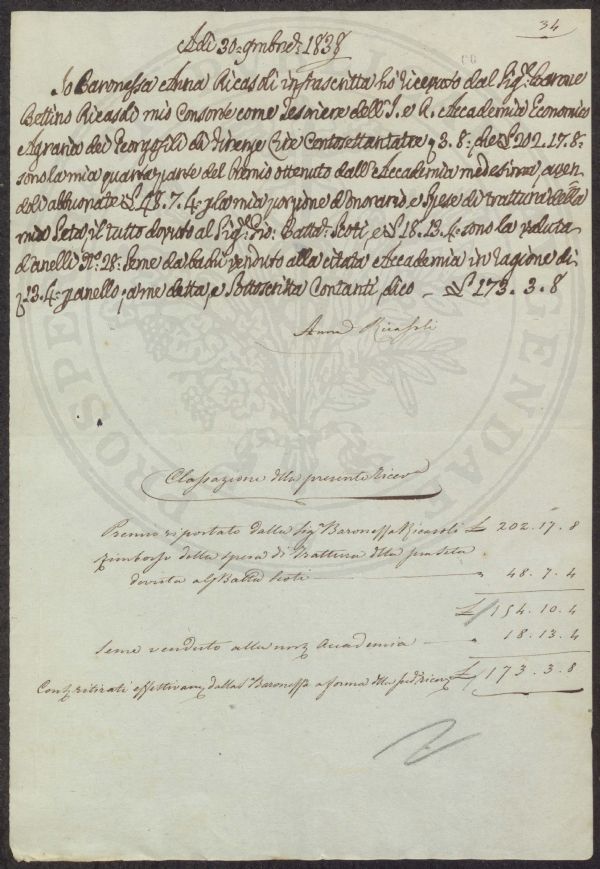 34
Adì 30. 9mbre 1838
Io Baronessa Anna Ricasoli infrascritta ho ricevuto dal Sigr. Barone
Bettino Ricasoli mio Consorte come Tesoriere dell'I. e R. Accademia Economico
Agraria dei Georgofili di Firenze Lire Centosettantatre 3. 8: che £ 202. 17. 8:
sono la mia quarta parte del Premio ottenuto dall'Accademia medesima aven-
doli abbuonate £ 48. 7. 4: p la mia porzione d'onorario, e spese di trattura della
mia Seta, il tutto dovuto al Sigr. Gio: Batta. Scoti, e £ 18. 13. 4: sono la valuta
d'anelli No. 28: Seme da bachi venduto alla citata Accademia in ragione di
13. 4: p anello; a me detta, e Sottoscritta Contanti dico — £ 173. 3. 8
Anna Ricasoli
Classazione della presente Ricev
Premio riportato dalla Sigra. Baronessa Ricasoli £ 202. 17. 8
rimborso della spesa di trattura della seta
dovuta al Batta Scoti — " 48. 7. 4
£ 154. 10. 4
Seme venduto alla Accademia — " 18. 13. 4
ritirati effettivam dalla Baronessa a forma della £ 173. 3. 8
PROSPERITATI AUGENDAE